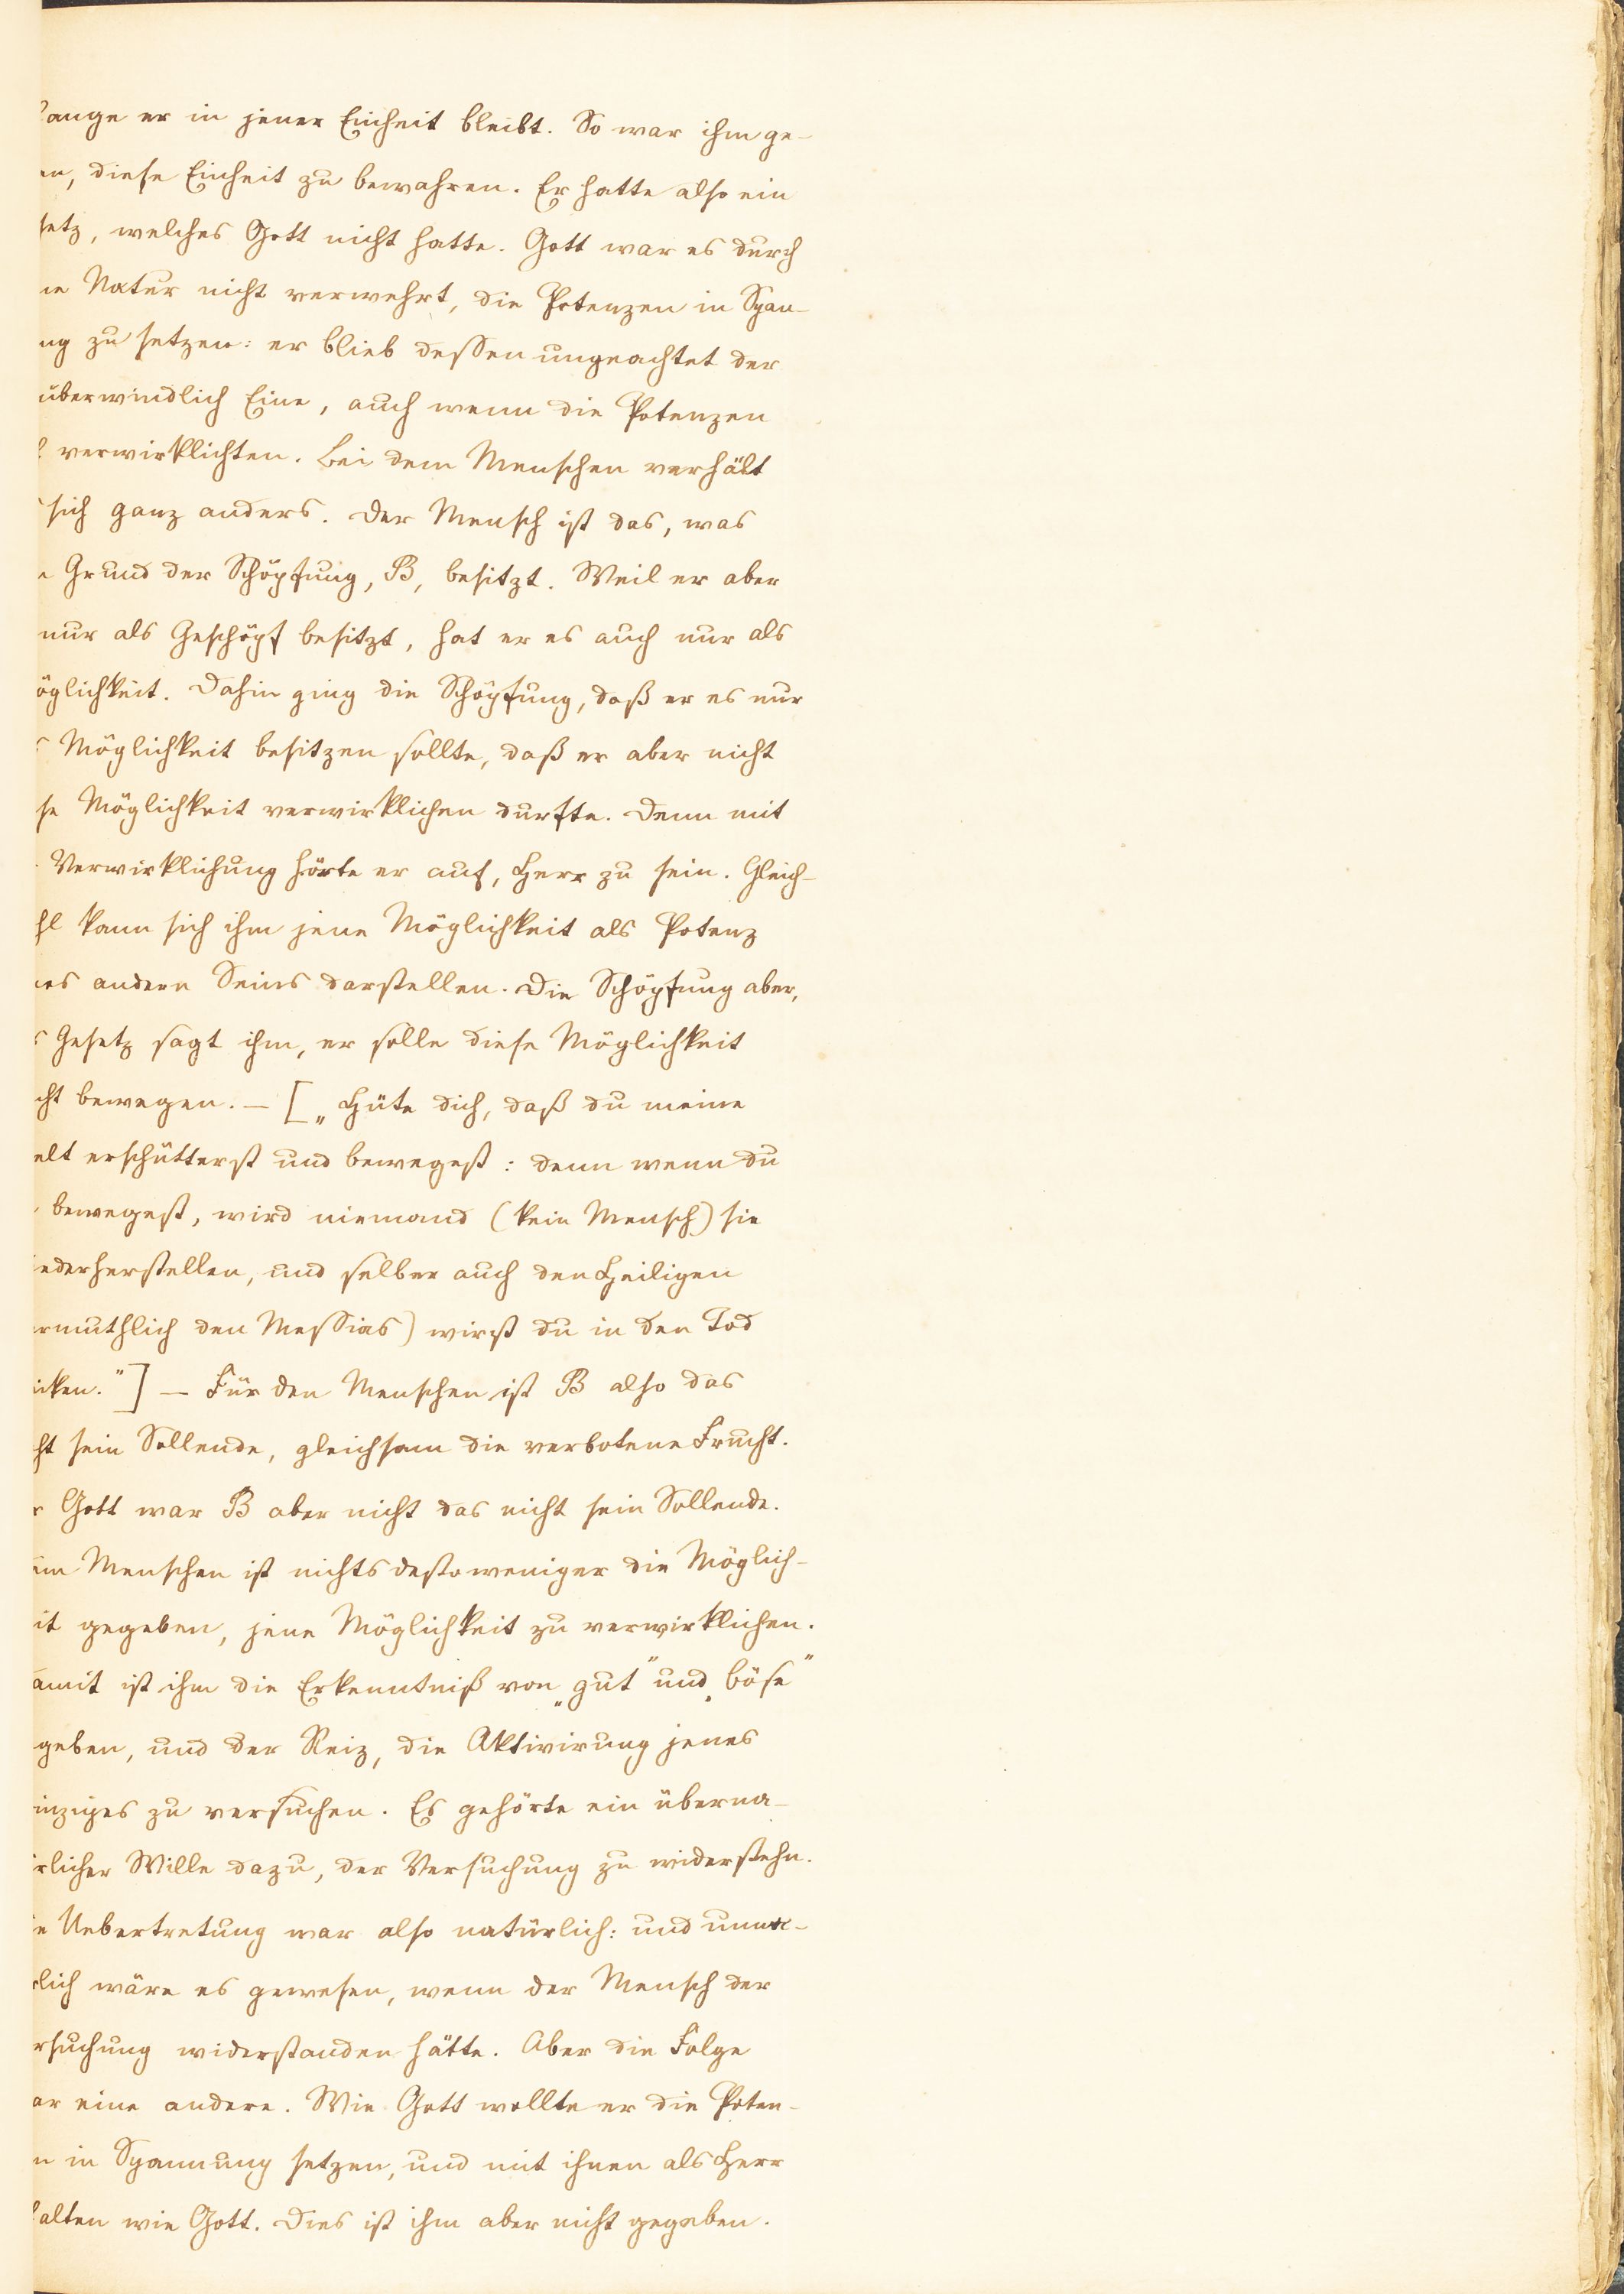 lange er in jener Einheit bleibt. So war ihm ge-
en, diese Einheit zu bewahren. Er hatte also ein
setz, welches Gott nicht hatte. Gott war es durch
ne Natur nicht verwehrt, die Potenzen in Span-
ng zu setzen: er blieb dessen ungeachtet der
überwindlich Eine, auch wenn die Potenzen
verwirklichten. Bei dem Menschen verhält
sich ganz anders. Der Mensch ist das, was
Grund der Schöpfung, B, besitzt. Weil er aber
nur als Geschöpf besitzt, hat er es auch nur als
öglichkeit. Dahin ging die Schöpfung, daß er es nur
s Möglichkeit besitzen sollte, daß er aber nicht
se Möglichkeit verwirklichen durfte. Denn mit
Verwirklichung hörte er auf, Herr zu sein. Gleich-
hl kann sich ihm jene Möglichkeit als Potenz
nes andern Seins darstellen. Die Schöpfung aber,
s Gesetz sagt ihm, er solle diese Möglichkeit
cht bewegen. — [„Hüte dich, daß du meine
elt erschütterst und bewegest: denn wenn du
bewegest, wird niemand (kein Mensch) sie
iederherstellen, und selber auch den Heiligen
ermuthlich den Messias) wirst du in den Tod
icken."] — Für den Menschen ist B also das
ht sein Sollende, gleichsam die verbotene Frucht.
r Gott war B aber nicht das nicht sein Sollende.
em Menschen ist nichts destoweniger die Möglich-
it gegeben, jene Möglichkeit zu verwirklichen.
amit ist ihm die Erkenntniß von „gut" und „böse"
geben, und der Reiz, die Aktivirung jenes
inzipes zu versuchen. Es gehörte ein überna-
ürlicher Wille dazu, der Versuchung zu widerstehn.
ie Uebertretung war also natürlich: und unna-
rlich wäre es gewesen, wenn der Mensch der
rsuchung widerstanden hätte. Aber die Folge
ar eine andere. Wie Gott wollte er die Poten-
n in Spannung setzen, und mit ihnen als Herr
alten wie Gott. Dies ist ihm aber nicht gegeben.